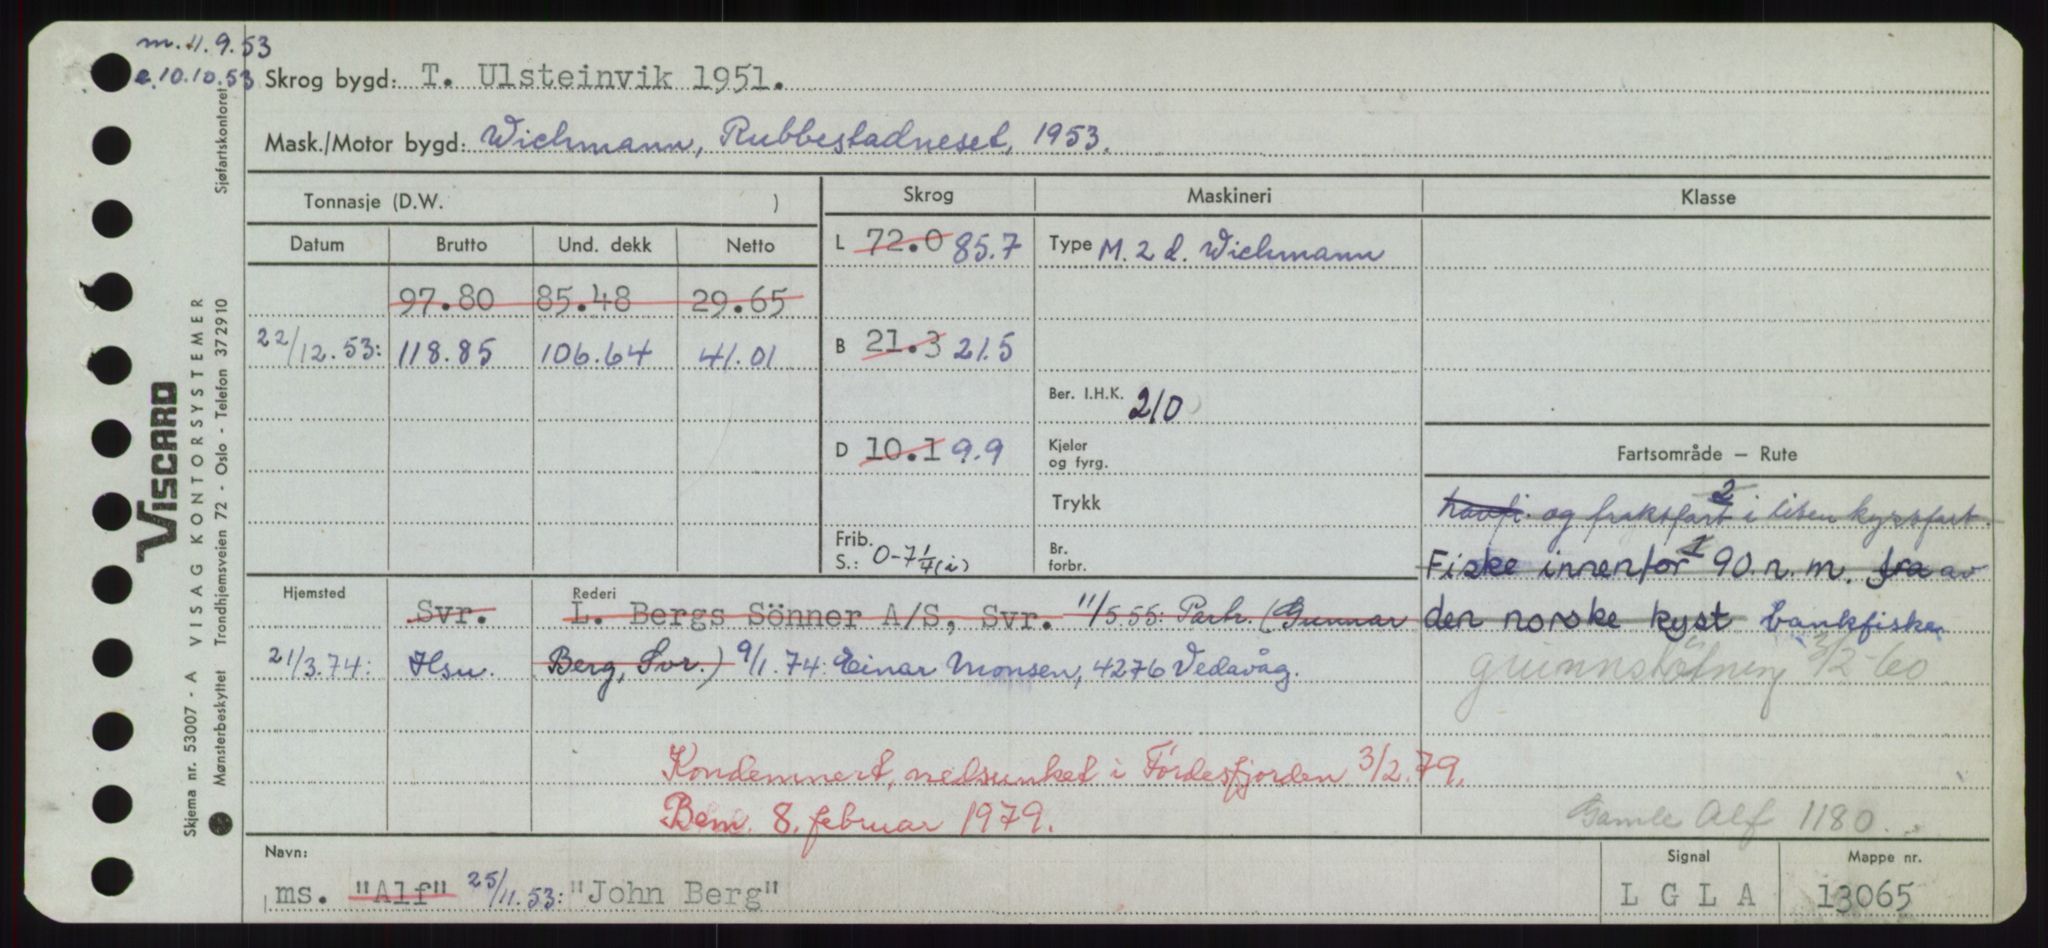 m. 11.9.53
e. 10.10.53
Skrog bygd: T. Ulsteinvik 1951.
Mask./Motor bygd: Wichmann, Rubbestadneset, 1953.
Tonnasje (D.W. )
Skrog
Maskineri
Klasse
Datum Brutto Und. dekk Netto
L 72.0 85.7
Type M. 2 d. Wichmann
97.80 85.48 29.65
22/12.53: 118.85 106.64 41.01
B 21.3 21.5
Ber. I.H.K. 210
D 10.1 9.9
Kjeler
og fyrg.
Trykk
Frib.
S.: 0-7 1/4 (i)
Br.
forbr.
Fartsområde — Rute
havfi. og fraktfart 2 i liten kystfart.
Fiske innenfor 1 90 n. m. fra av
den norske kyst bankfiske
3/2-60
Hjemsted
Rederi
Svr. L. Bergs Sönner A/S, Svr. 11/5.55: Partr. (Gunnar
21/3.74: Hsu. Berg, Svr.) 9/1.74: Einar Monsen, 4276 Vedavåg.
Kondemnert, nedsunket i Førdesfjorden 3/2.79.
Bem. 8. februar 1979.
Gamle Alf 1180
Navn:
ms. "Alf" 25/11.53: "John Berg"
Signal
L G L A
Mappe nr.
13065
VISCARD
Skjema nr. 53007 - A VISAG KONTORSYSTEMER
Mønsterbeskyttet Trondhjemsveien 72 - Oslo - Telefon 372910
Sjøfartskontoret